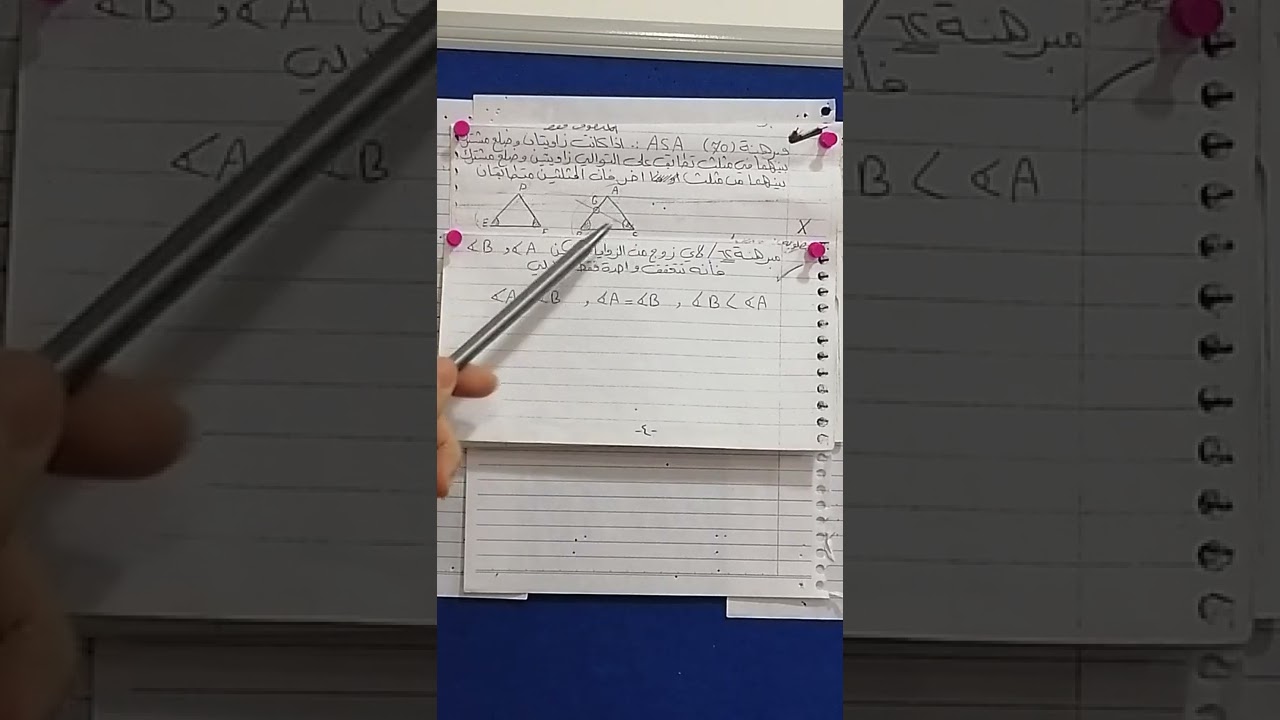 المنطوق فقط
مبرهنة (70) ASA :. اذا كانت زاويتان وضلع مشترك
بينهما من مثلث تطابق على التوالي زاويتين وضلع مشترك
بينهما من مثلث اخر فان المثلثين متطابقان
D
E
F
A
G
C
X
مبرهنة / لأي زوج من الزوايا ∢A و ∢B
فأنه تتحقق واحدة فقط
∢A ∢B , ∢A = ∢B , ∢B < ∢A
-٤-